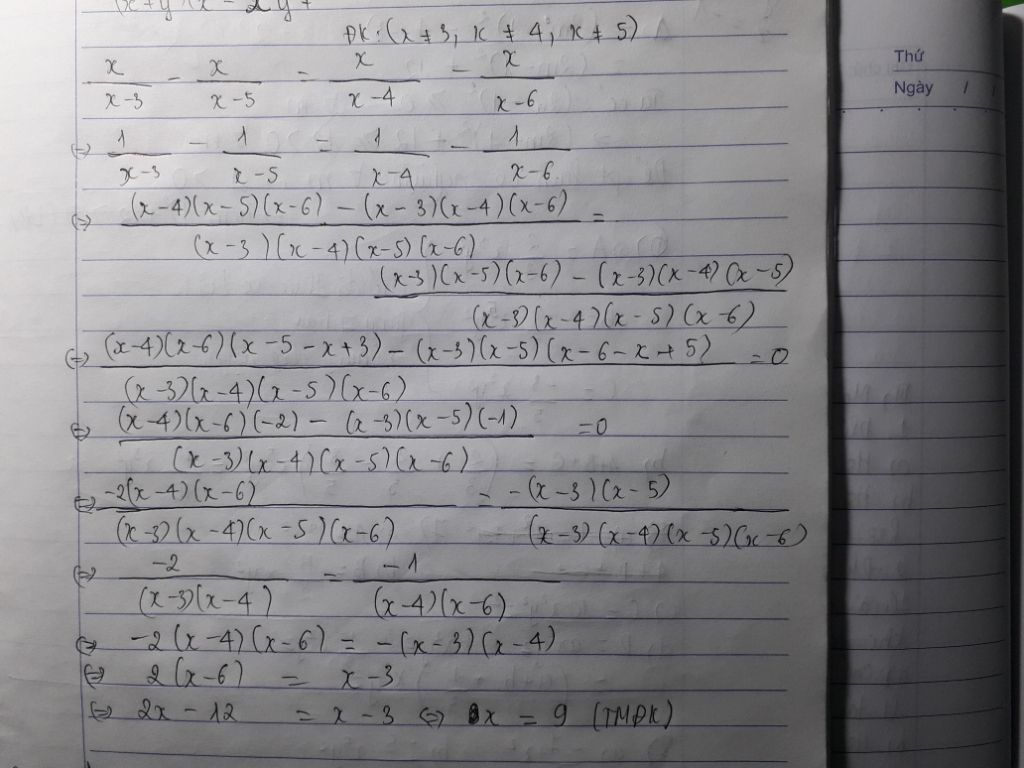 (x+y)(x-2y+
ĐK: (x ≠ 3; x ≠ 4; x ≠ 5)
x/(x-3) - x/(x-5) = x/(x-4) - x/(x-6)
⇔ 1/(x-3) - 1/(x-5) = 1/(x-4) - 1/(x-6)
⇔ ((x-4)(x-5)(x-6) - (x-3)(x-4)(x-6))/((x-3)(x-4)(x-5)(x-6)) =
((x-3)(x-5)(x-6) - (x-3)(x-4)(x-5))/((x-3)(x-4)(x-5)(x-6))
⇔ ((x-4)(x-6)(x-5-x+3) - (x-3)(x-5)(x-6-x+5))/((x-3)(x-4)(x-5)(x-6)) = 0
⇔ ((x-4)(x-6)(-2) - (x-3)(x-5)(-1))/((x-3)(x-4)(x-5)(x-6)) = 0
⇔ -2(x-4)(x-6)/((x-3)(x-4)(x-5)(x-6)) = -(x-3)(x-5)/((x-3)(x-4)(x-5)(x-6))
⇔ -2/((x-3)(x-4)) = -1/((x-4)(x-6))
⇔ -2(x-4)(x-6) = -(x-3)(x-4)
⇔ 2(x-6) = x-3
⇔ 2x-12 = x-3 ⇔ x = 9 (TMĐK)
Thứ
Ngày / /